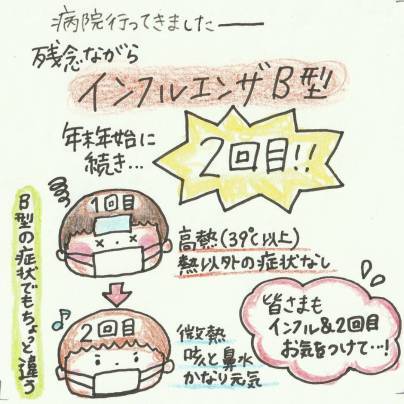 病院行ってきましたー
残念ながら
インフルエンザB型
年末年始に
続き…
2回目!!
1回目
高熱(39℃以上)
熱以外の症状なし
B型の症状でもちょっと違う
2回目
微熱
咳と鼻水
かなり元気
皆さまも
インフル&2回目
お気をつけて…!